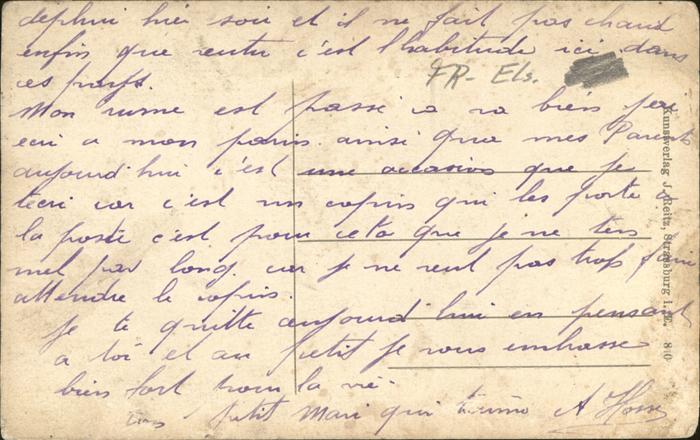 dephui hier soir et il ne fait pas chaud
enfin que veutu c'est l'habitude ici dans
ces pays.
FR- Els.
Mon rume est passé ca va bien jai
ecri a mon parin ainsi qua mes Parents
aujourd'hui c'est une occasion que je
tecri car c'est un copin qui les porte a
la poste c'est pour cela que je ne ten
met pas long car je ne veut pas trop faire
attendre le copin.
Je te quitte aujourd'hui en pensant
a toi et au petit je vous embrasse
bien fort pour la vie
ton petit Mari qui t'aime A
Kunstverlag J. Reitz, Strassburg i. E. 810